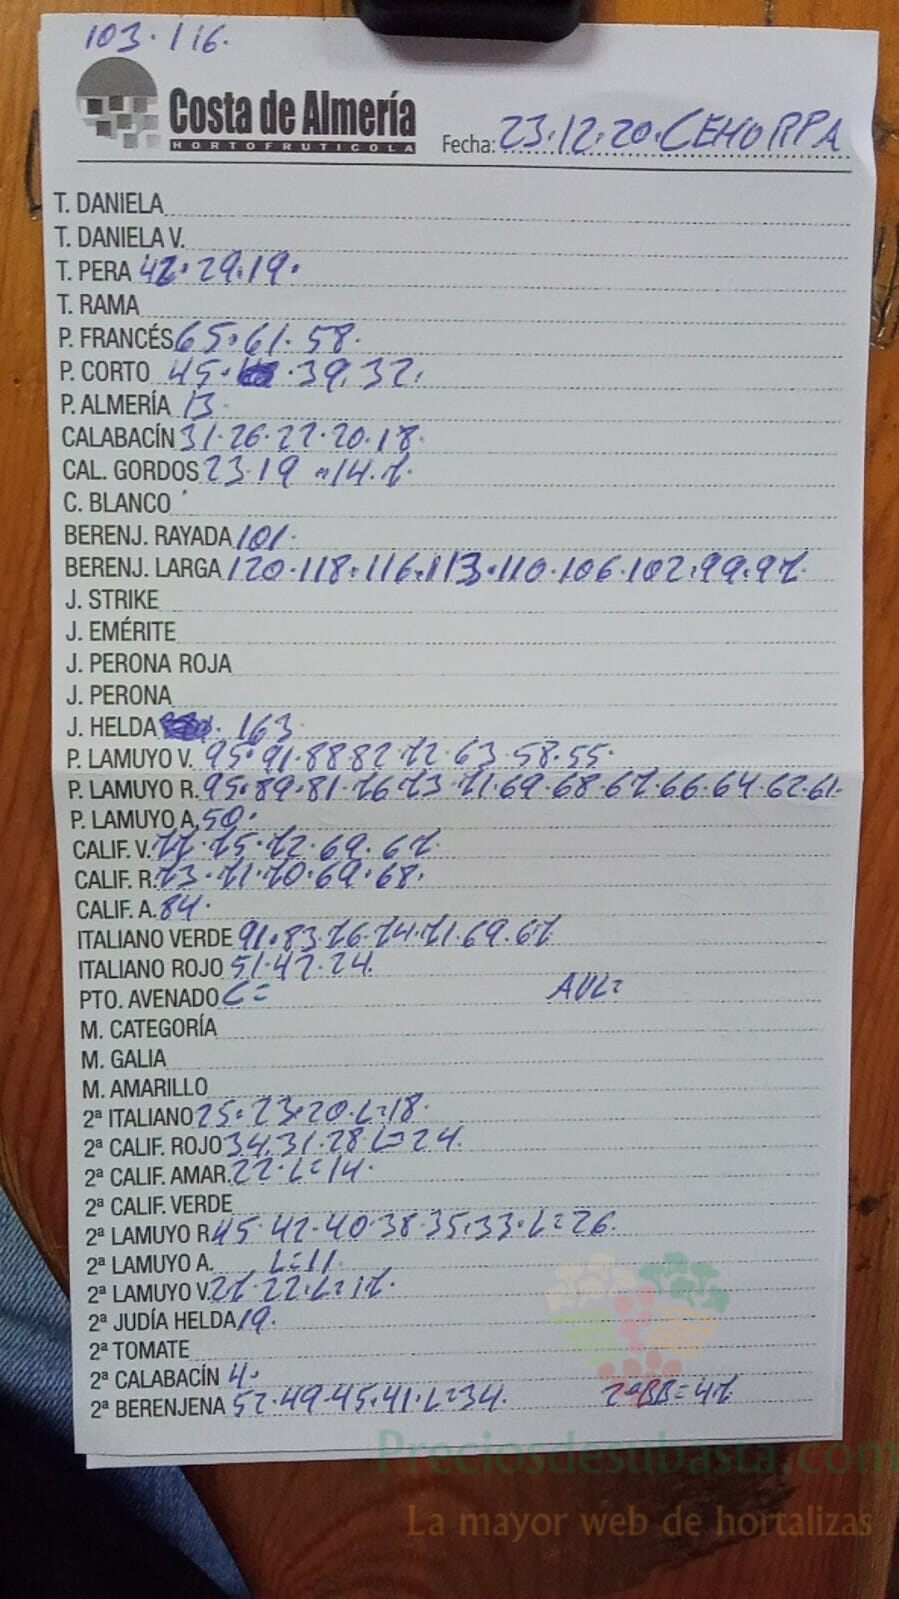 103.116.
Costa de Almería
HORTOFRUTICOLA
Fecha: 23.12.20. CEHORPA
T. DANIELA
T. DANIELA V.
T. PERA 42.29.19.
T. RAMA
P. FRANCÉS 65.61.58.
P. CORTO 45. .39.32.
P. ALMERÍA 13
CALABACÍN 31.26.22.20.18
CAL. GORDOS 23.19 14.7.
C. BLANCO
BERENJ. RAYADA 101.
BERENJ. LARGA 120.118.116.113.110.106.102.99.97.
J. STRIKE
J. EMÉRITE
J. PERONA ROJA
J. PERONA
J. HELDA . 163
P. LAMUYO V. 95.91.88.82.72.63.58.55.
P. LAMUYO R. 95.89.81.76.73.71.69.68.67.66.64.62.61.
P. LAMUYO A. 50.
CALIF. V. 77.75.72.69.67.
CALIF. R. 73.71.70.69.68.
CALIF. A. 84.
ITALIANO VERDE 91.83.76.74.71.69.67
ITALIANO ROJO 51.42.24.
PTO. AVENADO C= AVL=
M. CATEGORÍA
M. GALIA
M. AMARILLO
2ª ITALIANO 25.23.20.L=18.
2ª CALIF. ROJO 34.31.28.L=24.
2ª CALIF. AMAR. 22.L=14.
2ª CALIF. VERDE
2ª LAMUYO R. 45.42.40.38.35.33.L=26.
2ª LAMUYO A. L=11
2ª LAMUYO V. 27.22.L=17.
2ª JUDÍA HELDA 19.
2ª TOMATE
2ª CALABACÍN 4.
2ª BERENJENA 52.49.45.41.L=34. 2ªBB=47.
Preciosdesubasta.com
La mayor web de hortalizas